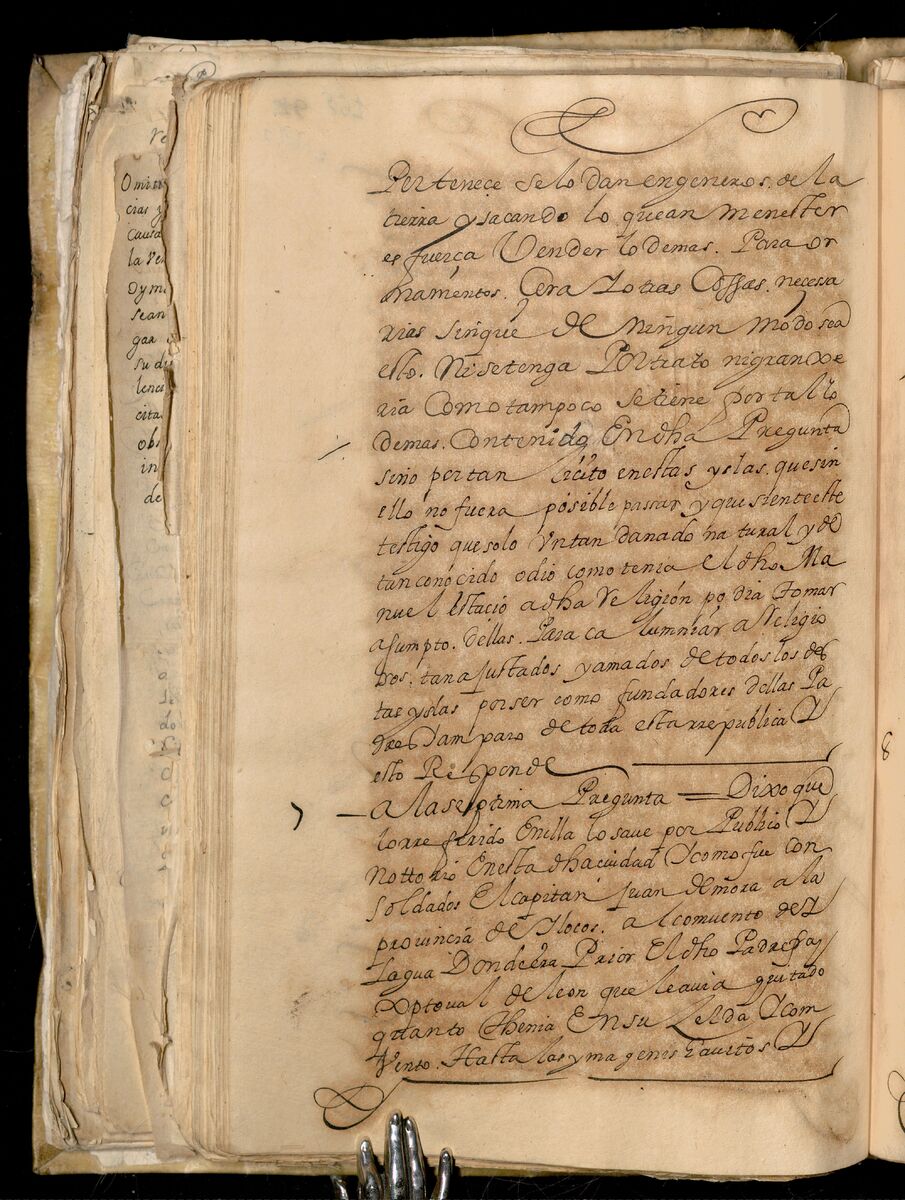 Pertenece se lo dan en generos. de la
tierra y sacando lo quean menester
es fuerça Vender lo demas. Para or
namentos. Cera Y otras Cossas. necesa
rias sinque de ningun modo sea
esto. Ni setenga Por trato ni granxe
ria Como tampoco setiene por tal lo
demas. Contenido En dha Pregunta
sino por tan licito en estas yslas. que sin
ello no fuera posible passar y que siente este
testigo que solo Un tan danado natural y de
tan conocido odio como tenia el dho Ma
nuel Estacio a dha Religion podia tomar
asumpto. dellas. Para calumniar a Religio
sos. tan ajustados y amados de todos los des
tas yslas por ser como fundadores dellas Pa
dres Damparo de toda esta rrepublica Y
esto Responde
7 – a la septima Pregunta = Dixo que
lo rreferido En illa lo save por Publico Y
Nottorio En esta dha ciudad Y como fue con
Soldados El capitan Juan de mora a la
provincia de Ylocos. al comvento de Y
lagua Donde era Prior El dho Padre fray
Xptoval de leon que le avia quitado
quanto thenia En su Zelda Y com
Vento. Hasta las ymagenes Y
8
Omiti
cias y
Causa
la Ve
Oyme
sean
gar
su di
lence
cita
obs
in
de